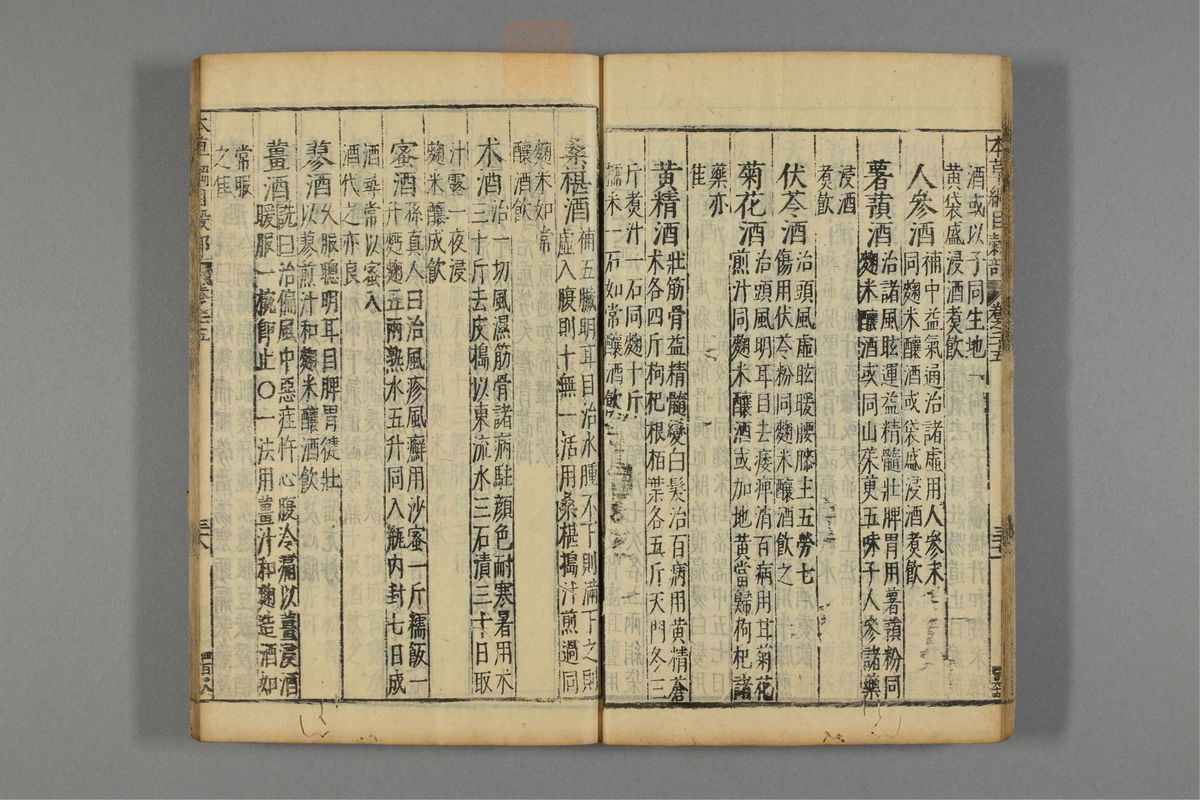 酒或以子同生地
黃袋盛浸酒煮飲
人參酒補中益氣通治諸虛用人參末
同麴米釀酒或袋盛浸酒煮飲
薯蕷酒治諸風眩運益精髓壯脾胃用薯蕷粉同
麴米釀酒或同山茱萸五味子人參諸藥
浸酒
煮飲
伏苓酒治頭風虛眩暖腰膝主五勞七
傷用伏苓粉同麴米釀酒飲之
菊花酒治頭風明耳目去痿痺消百病用甘菊花
煎汁同麴米釀酒或加地黃當歸枸杞諸
藥亦
佳
黃精酒壯筋骨益精髓變白髮治百病用黃精蒼
术各四斤枸杞根栢葉各五斤天門冬三
斤煮汁一石同麴十斤
糯米一石如常釀酒飲
桑椹酒補五臟明耳目治水腫不下則滿下之則
虛入腹則十無一活用桑椹搗汁煎過同
麴米如常
釀酒飲
术酒治一切風濕筋骨諸病駐顏色耐寒暑用术
三十斤去皮搗以東流水三石漬三十日取
汁露一夜浸
麴米釀成飲
蜜酒孫真人曰治風疹風癬用沙蜜一斤糯飯一
升麪麴五兩熟水五升同入瓶內封七日成
酒尋常以蜜入
酒代之亦良
蓼酒久服聰明耳目脾胃徤壯
以蓼煎汁和麴米釀酒飲
薑酒詵曰治偏風中惡疰忤心腹冷痛以薑浸酒
暖服一椀卽止〇一法用薑汁和麴造酒如
常服
之佳